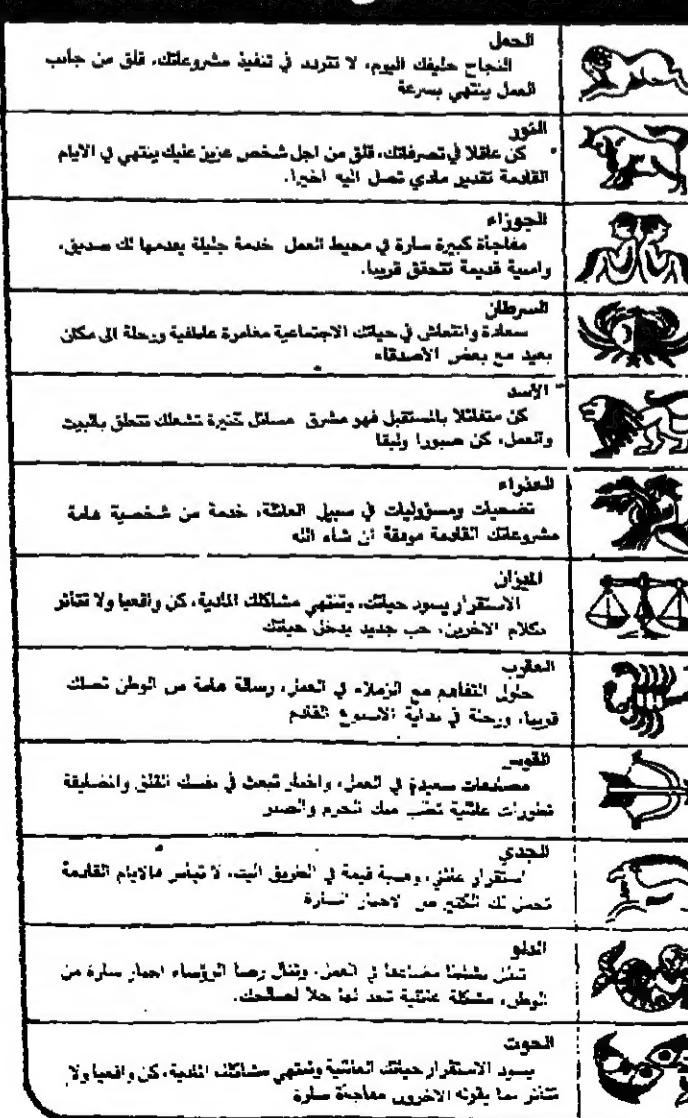 الحمل
النجاح حليفك اليوم، لا تتردد في تنفيذ مشروعاتك، قلق من جانب
العمل ينتهي بسرعة
الثور
كن عاقلا في تصرفاتك، قلق من اجل شخص عزيز عليك ينتهي في الايام
القادمة تقدير مادي تصل اليه اخيرا.
الجوزاء
مفاجأة كبيرة سارة في محيط العمل خدمة جليلة يقدمها لك صديق،
وامنية قديمة تتحقق قريبا.
السرطان
سعادة وانتعاش في حياتك الاجتماعية مغامرة عاطفية ورحلة الى مكان
بعيد مع بعض الأصدقاء
الأسد
كن متفائلا بالمستقبل فهو مشرق مسائل كثيرة تشغلك تتعلق بالبيت
والعمل، كن صبورا ولبقا
العذراء
تضحيات ومسؤوليات في سبيل العائلة، خدمة من شخصية هامة
مشروعاتك القادمة موفقة ان شاء الله
الميزان
الاستقرار يسود حياتك، وتنتهي مشاكلك المادية، كن واقعيا ولا تتأثر
بكلام الاخرين، حب جديد يدخل حياتك
العقرب
حاول التفاهم مع الزملاء في العمل، رسالة هامة من الوطن تصلك
قريبا، ورحلة في بداية الاسبوع القادم
القوس
سعيدة في العمل، واخبار تبعث في نفسك القلق والمضايقة
تطورات عائلية تطلب منك الحزم والصبر
الجدي
استقرار عائلي، وهبة قيمة في الطريق اليك، لا تيأس فالايام القادمة
تحمل لك الكثير من الاخبار السارة
الدلو
تبذل نشاطا مضاعفا في العمل، وتنال رضا الرؤساء اخبار سارة من
الوطن، مشكلة عائلية تجد لها حلا لصالحك.
الحوت
يسود الاستقرار حياتك العائلية وتنتهي مشاكلك المادية، كن واقعيا ولا
تتأثر بما يقوله الاخرون مفاجأة سارة